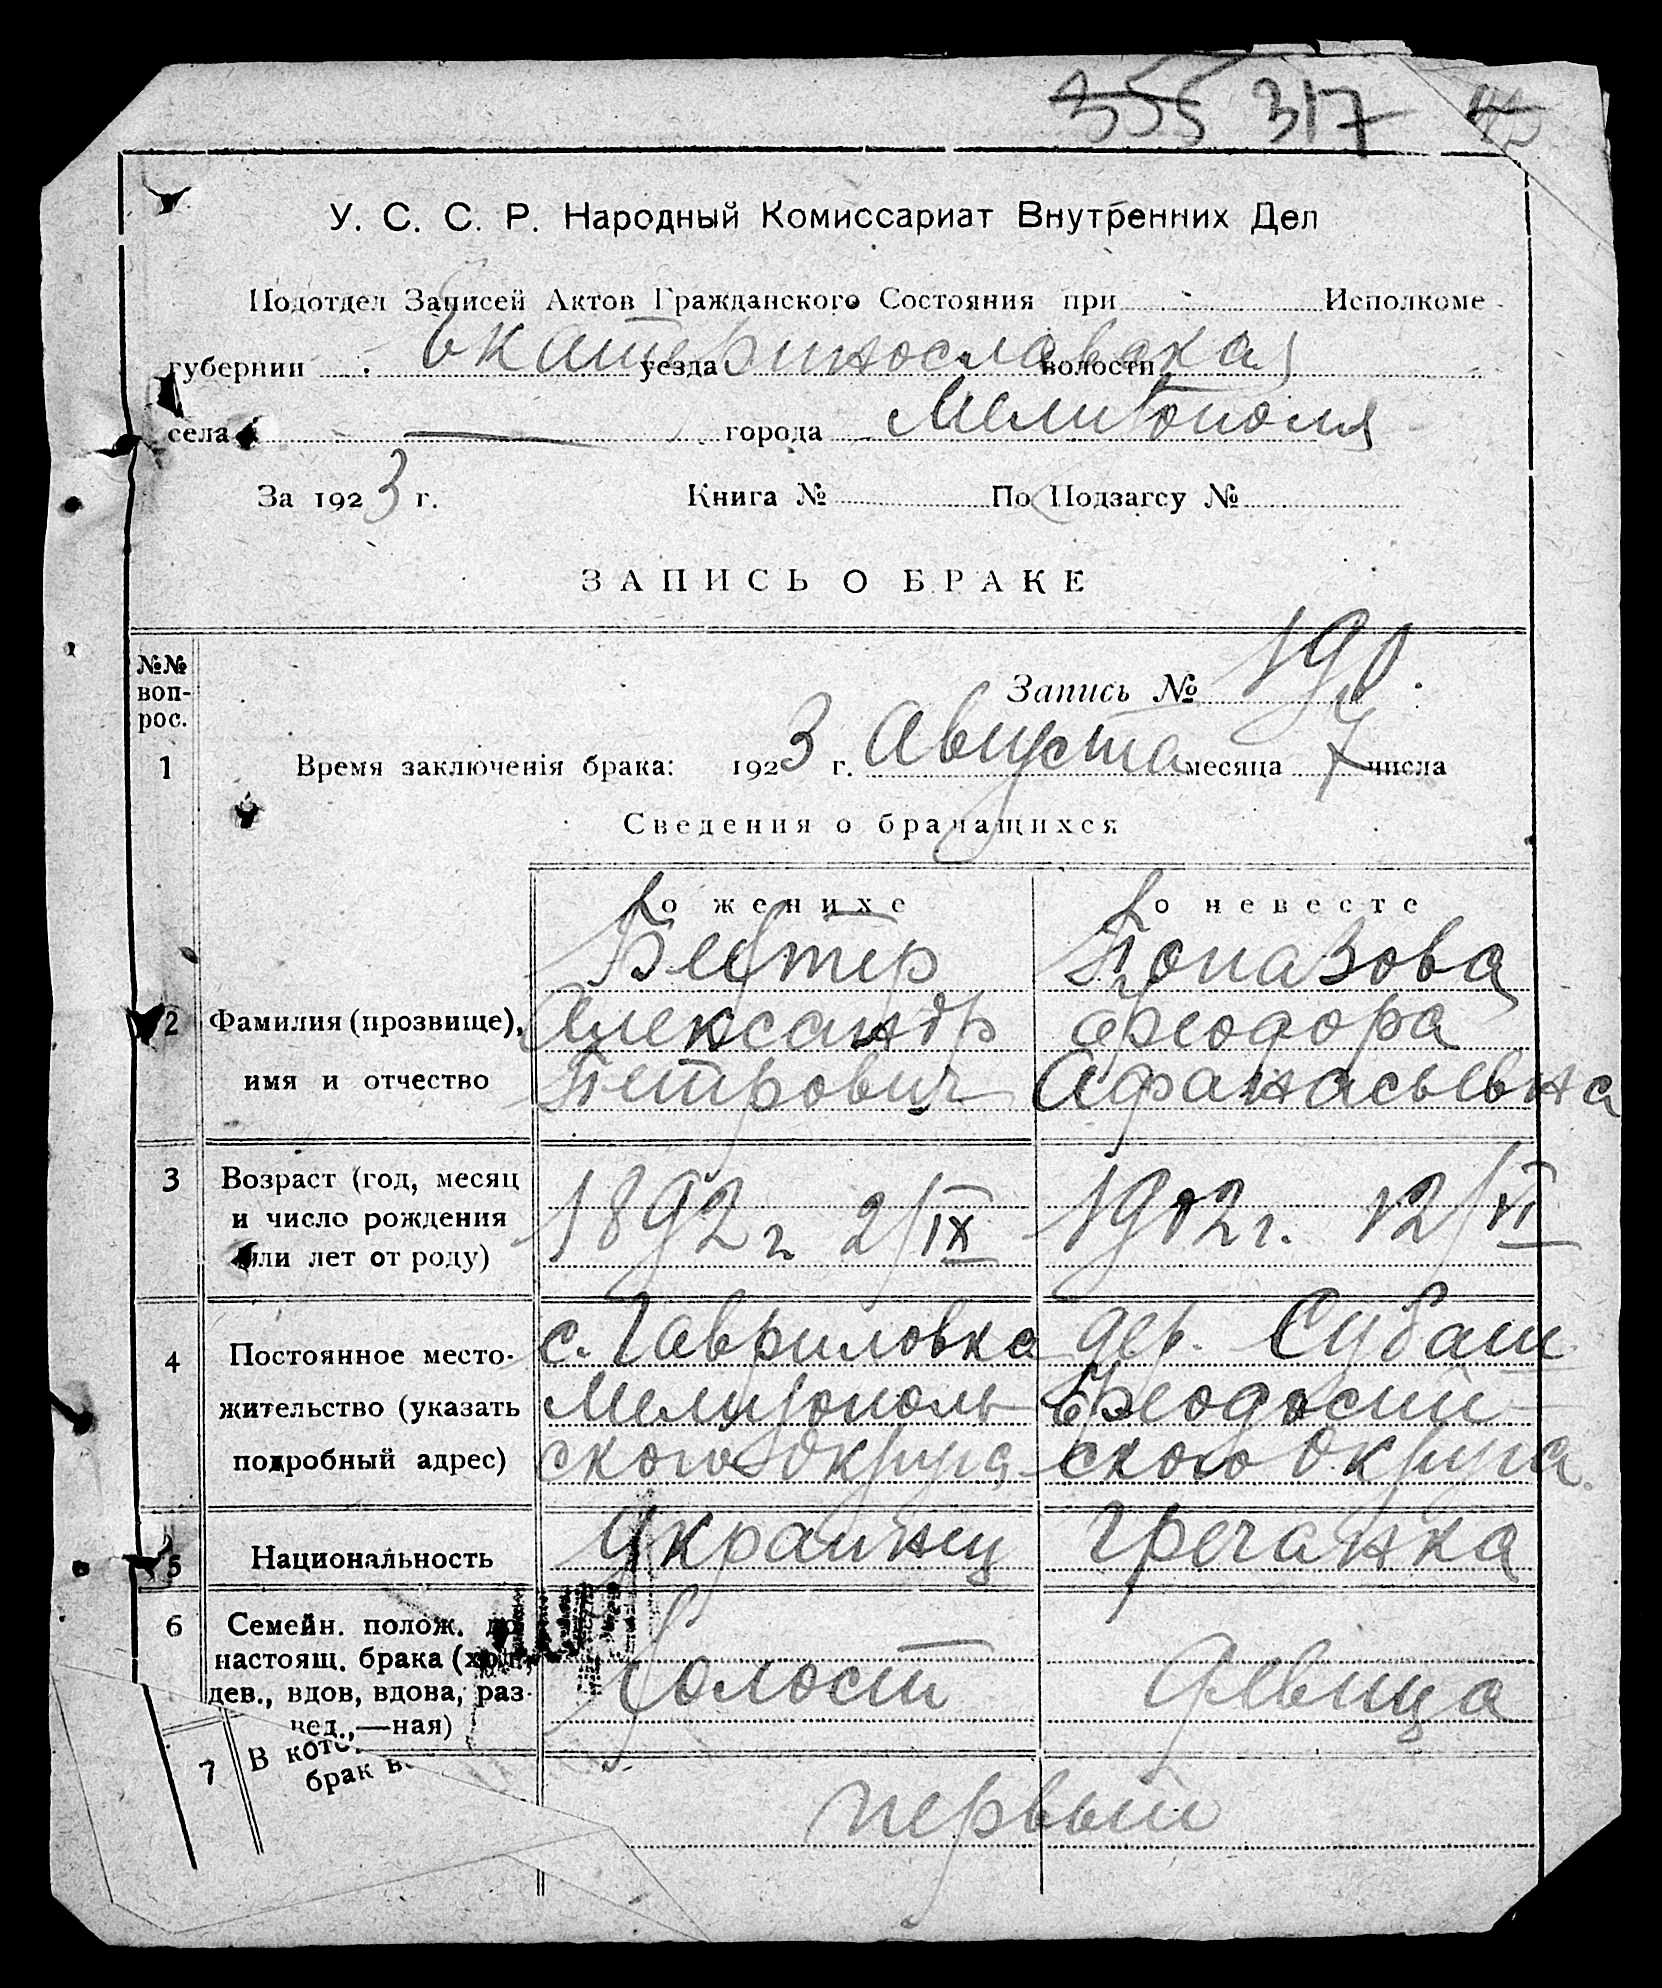 355 317
У. С. С. Р. Народный Комиссариат Внутренних Дел
Подотдел Записей Актов Гражданского Состояния при Исполкоме
губернии Екатеринославская уезда волости
села — города Мелитополя
За 1923 г. Книга № По Подзагсу №
ЗАПИСЬ О БРАКЕ
№№ вопрос.
Запись № 190
1 Время заключенія брака: 1923 г. Августа месяца 7 числа
Сведения о брачащихся
о женихе о невесте
Бейтер Попазова
2 Фамилия (прозвище), Александр Феодора
имя и отчество Петрович Афанасьевна
3 Возраст (год, месяц
и число рождения 1892 г. 2/IX 1902 г. 12/VI
или лет от роду)
с. Гавриловка дер. Субаш
4 Постоянное место-
жительство (указать Мелитополь- Феодосий-
подробный адрес) ского округа ского округа
5 Национальность Украинец Гречанка
6 Семейн. полож. до
настоящ. брака (хол.,
дев., вдов, вдова, раз- Холост Девица
вед.,—ная)
7 В
брак
первый